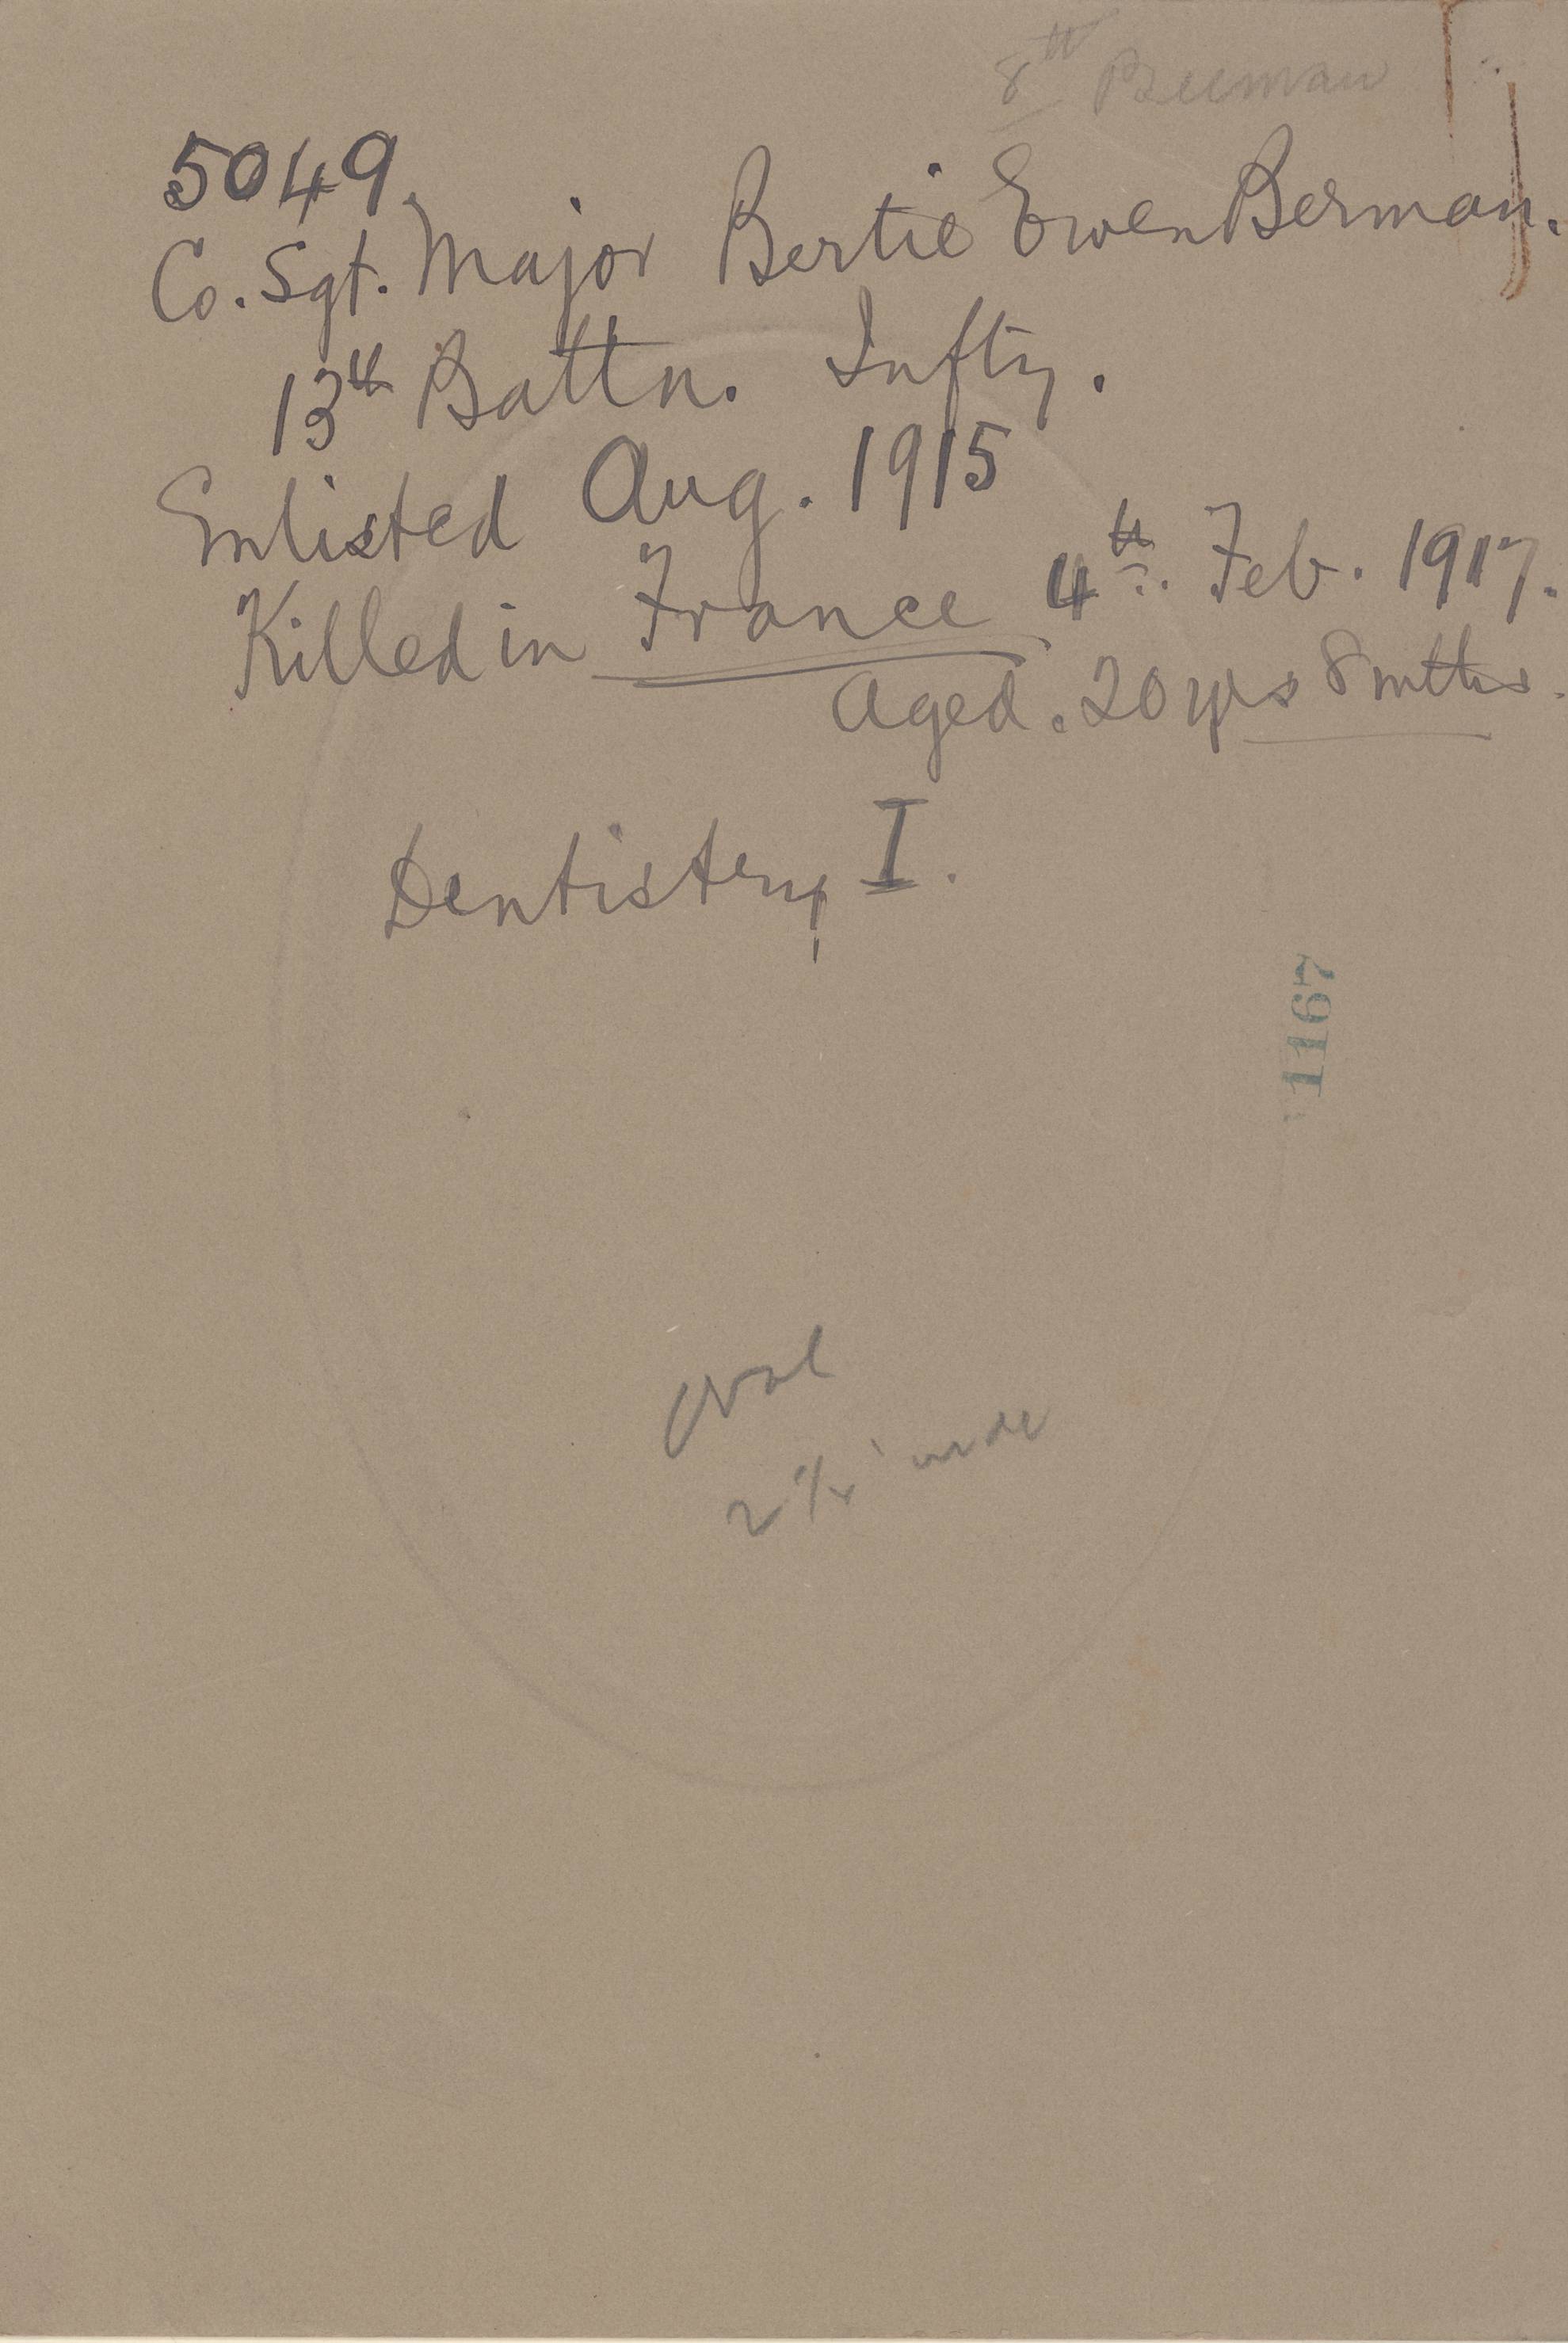 8th Beeman
5049
Co. Sgt. Major Bertie Ewen Berman.
13th Battn. Infty.
Enlisted Aug. 1915
Killed in France 4th. Feb. 1917.
Aged. 20 yrs 8 mths.
Dentistry I.
1167
Oval
2 1/4" wide